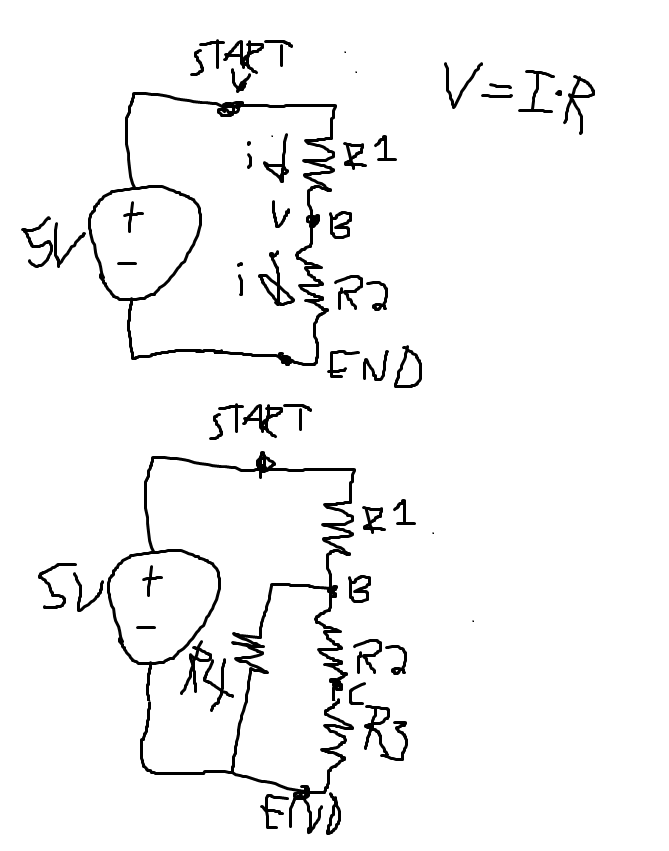 START
V=I·R
i R1
5V + V B
-
i R2
END
START
R1
5V + B
-
R4 R2
C
R3
END